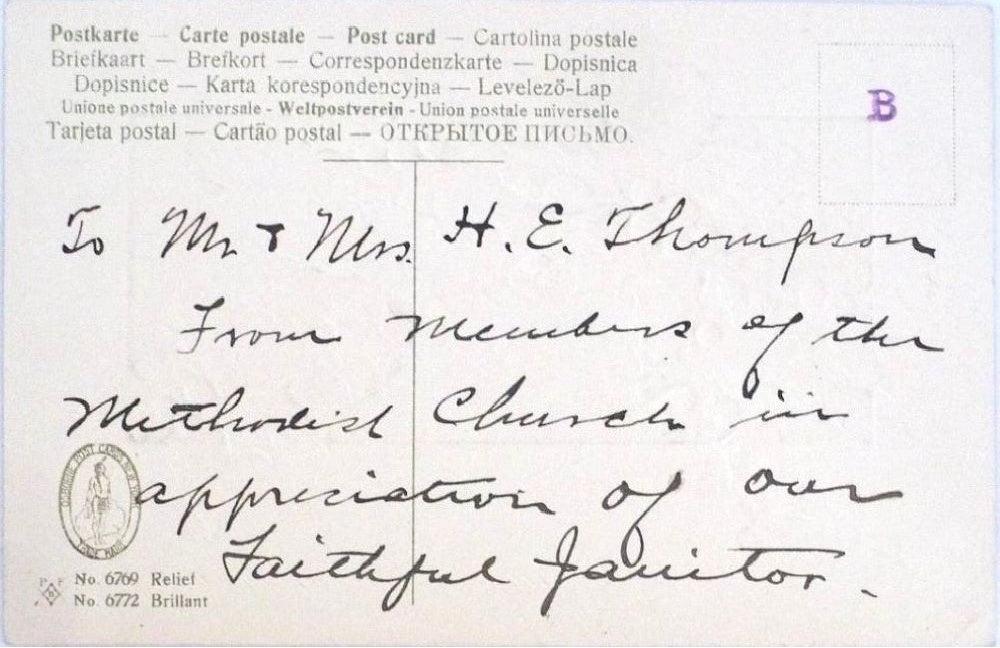 Postkarte — Carte postale — Post card — Cartolina postale
Briefkaart — Brefkort — Correspondenzkarte — Dopisnica
Dopisnice — Karta korespondencyjna — Levelező-Lap
Unione postale universale - Weltpostverein - Union postale universelle
Tarjeta postal — Cartão postal — ОТКРЫТОЕ ПИСЬМО.
B
To Mr. & Mrs. H. E. Thompson
From Members of the
Methodist Church in
appreciation of our
Faithful Janitor.
TRADE MARK
P F B
No. 6769 Relief
No. 6772 Brillant